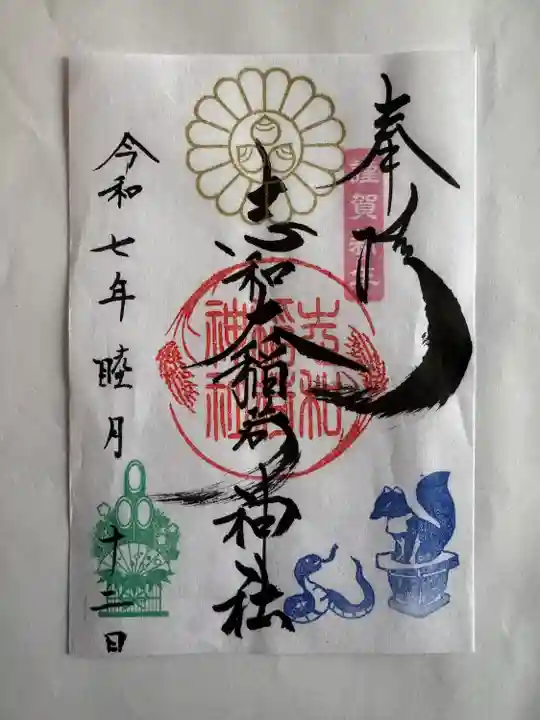 奉拝
謹賀新年
志和稲荷神社
志和
稲荷
神社
令和七年睦月十二日